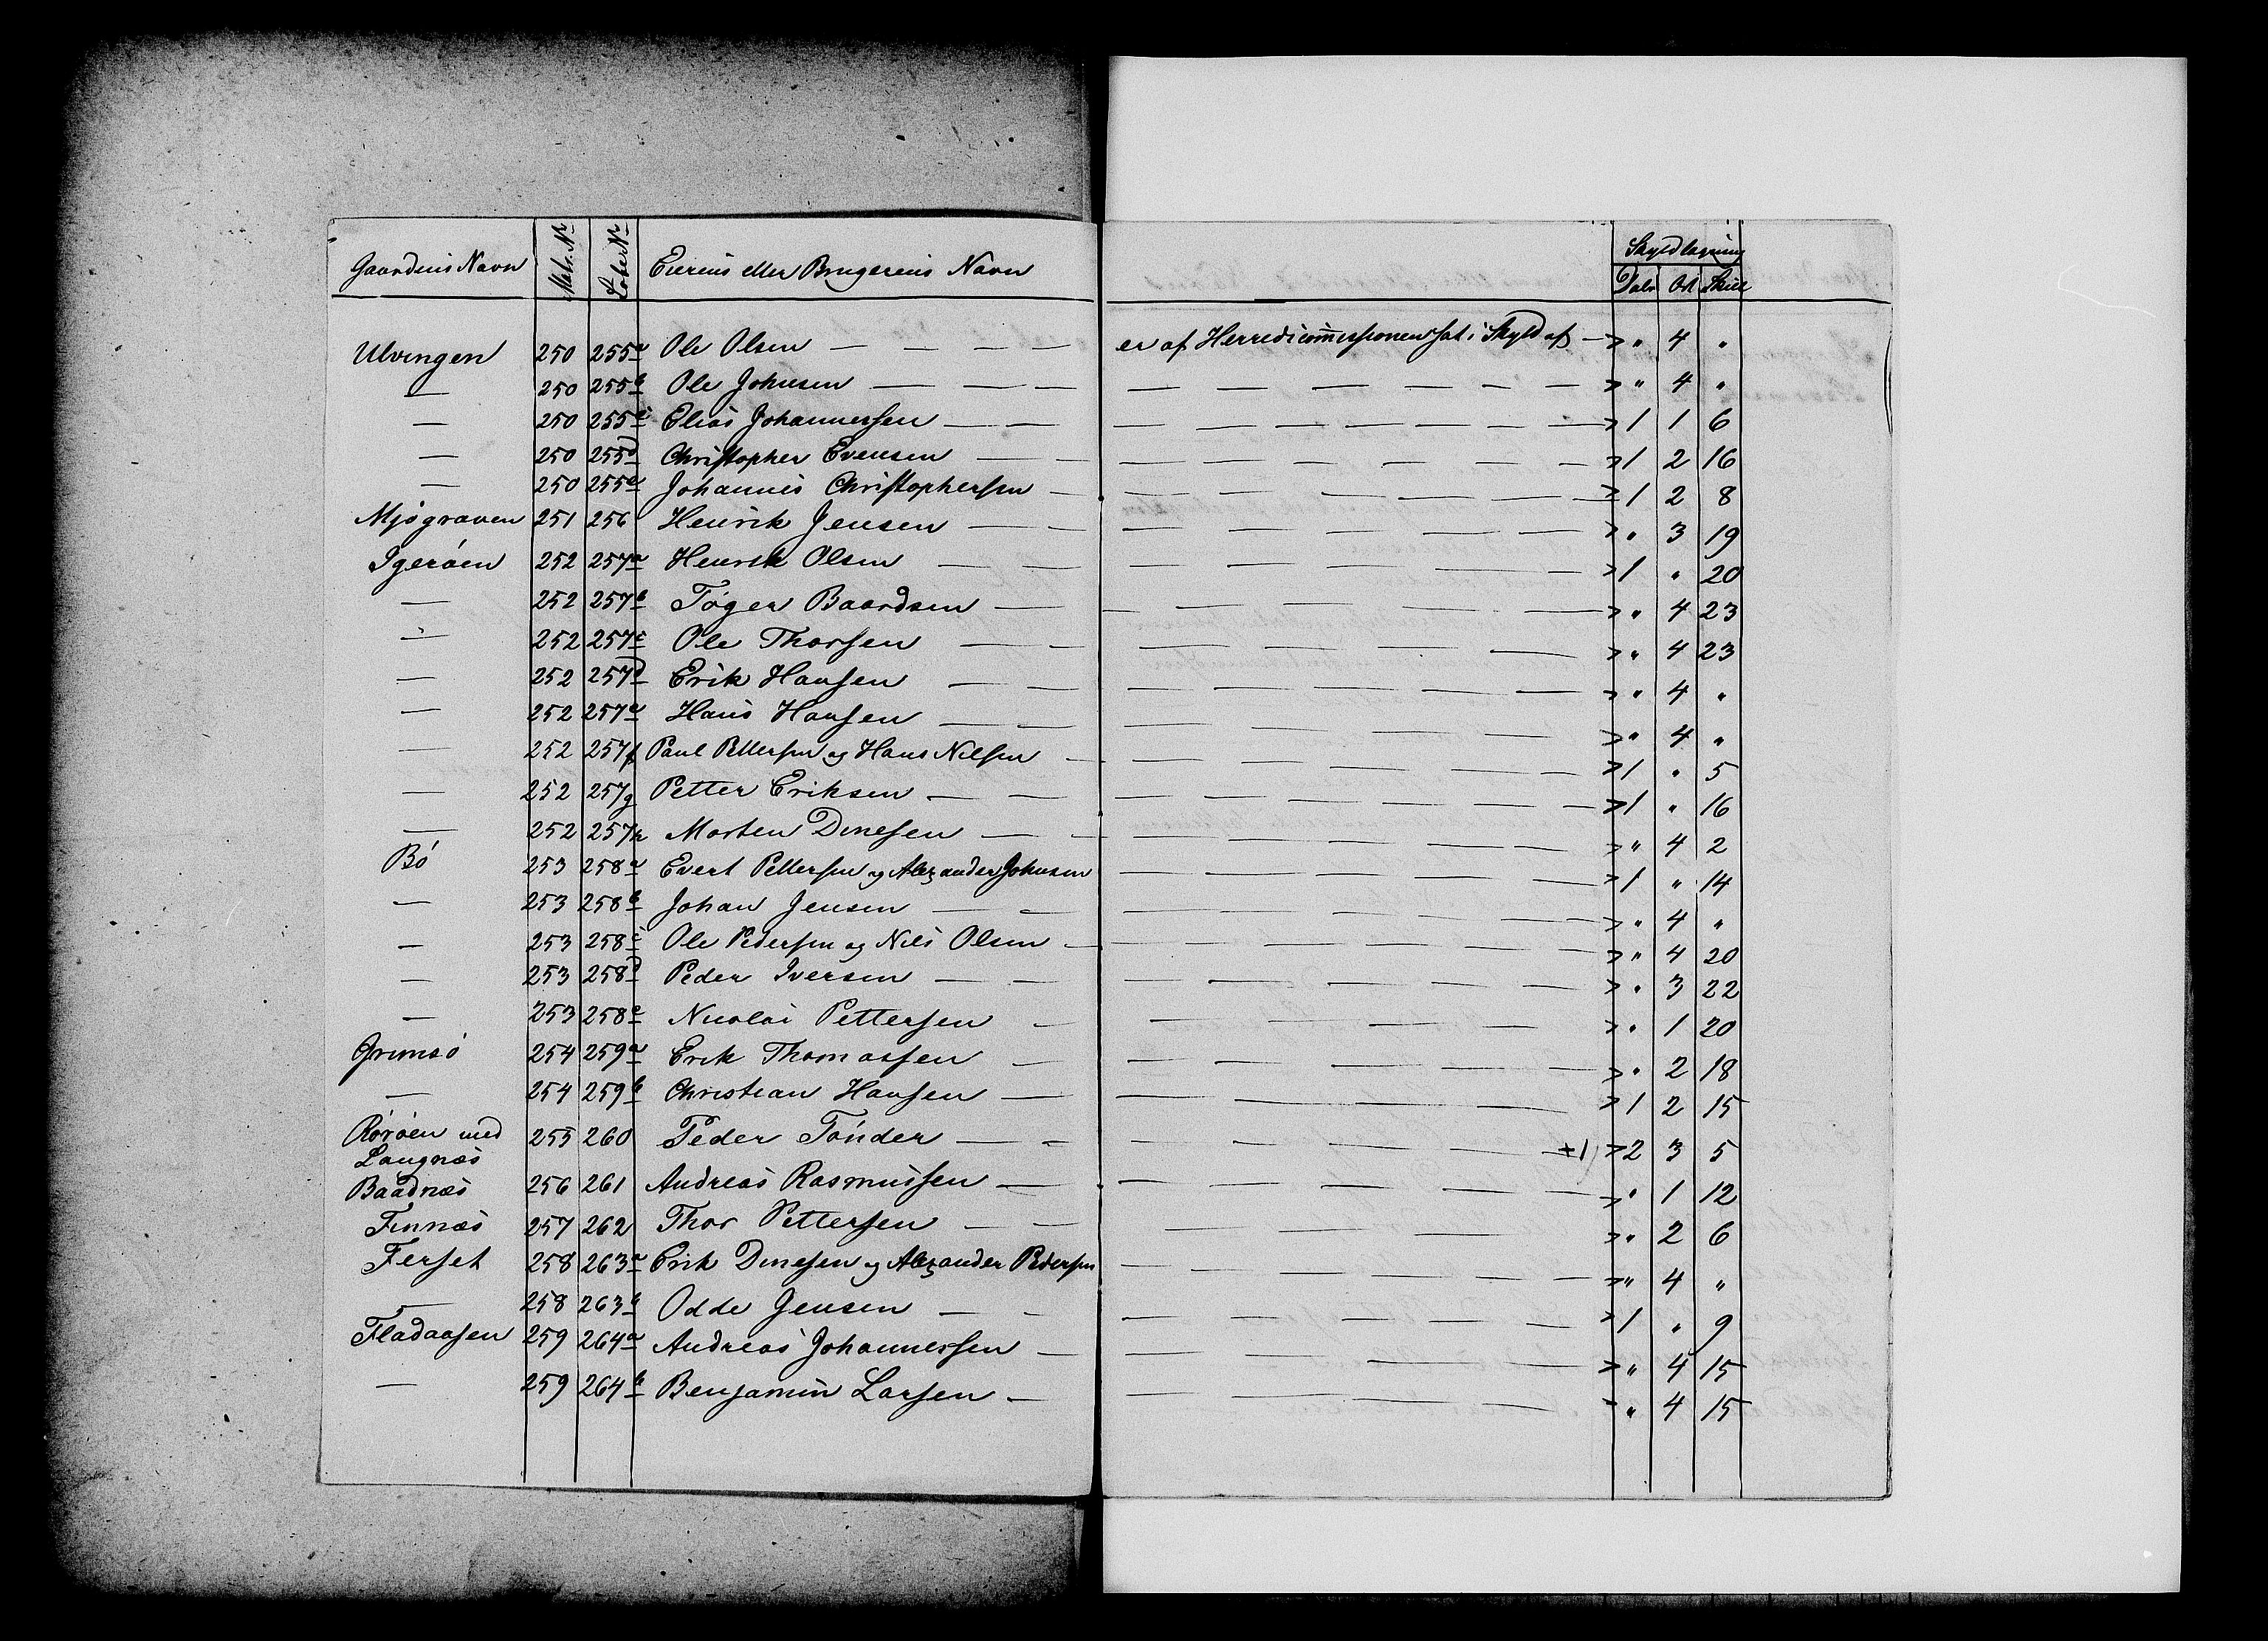 Gaardens Navn | Matr. No | Løbe No | Eierens eller Brugerens Navn | | Skyldlægning
Daler | Ort | Skill
Ulvingen | 250 | 255a | Ole Olsen — — — — | er af Herredscommissionen sat i Skyld af — | " | 4 | "
— | 250 | 255b | Ole Johnsen — — — | — | " | 4 | "
— | 250 | 255c | Elias Johannessen — — | — | 1 | 1 | 6
— | 250 | 255d | Christopher Evensen — — | — | 1 | 2 | 16
— | 250 | 255e | Johannes Christophersen — | — | 1 | 2 | 8
Mjøgraven | 251 | 256 | Henrik Jensen — — | — | " | 3 | 19
Igerøen | 252 | 257a | Henrik Olsen — — | — | 1 | " | 20
— | 252 | 257b | Tøger Baardsen — | — | " | 4 | 23
— | 252 | 257c | Ole Thorsen — — | — | " | 4 | 23
— | 252 | 257d | Erik Hansen — — | — | " | 4 | "
— | 252 | 257e | Hans Hansen — — | — | " | 4 | "
— | 252 | 257f | Paul Pettersen og Hans Nilsen — | — | 1 | " | 5
— | 252 | 257g | Petter Eriksen — — | — | 1 | " | 16
— | 252 | 257h | Morten Dinesen — — | — | " | 4 | 2
Bø | 253 | 258a | Evert Pettersen og Alexander Johnsen | — | 1 | " | 14
— | 253 | 258b | Johan Jensen — — | — | " | 4 | "
— | 253 | 258c | Ole Pedersen og Nils Olsen — | — | " | 4 | 20
— | 253 | 258d | Peder Iversen — — | — | " | 3 | 22
— | 253 | 258e | Nicolai Pettersen — | — | " | 1 | 20
Grimsø | 254 | 259a | Erik Thomassen — | — | " | 2 | 18
— | 254 | 259b | Christian Hansen — | — | 1 | 2 | 15
Rørøen med | 255 | 260 | Peder Tønder — — | — +1) | 2 | 3 | 5
Langnæs
Baadnæs | 256 | 261 | Andreas Rasmussen — | — | " | 1 | 12
Finnæs | 257 | 262 | Thor Pettersen — — | — | " | 2 | 6
Ferset | 258 | 263a | Erik Dinesen og Alexander Pedersen | — | " | 4 | "
— | 258 | 263b | Odde Jensen — — | — | 1 | " | 9
Fladaasen | 259 | 264a | Andreas Johannessen — | — | " | 4 | 15
— | 259 | 264b | Benjamin Larsen — | — | " | 4 | 15